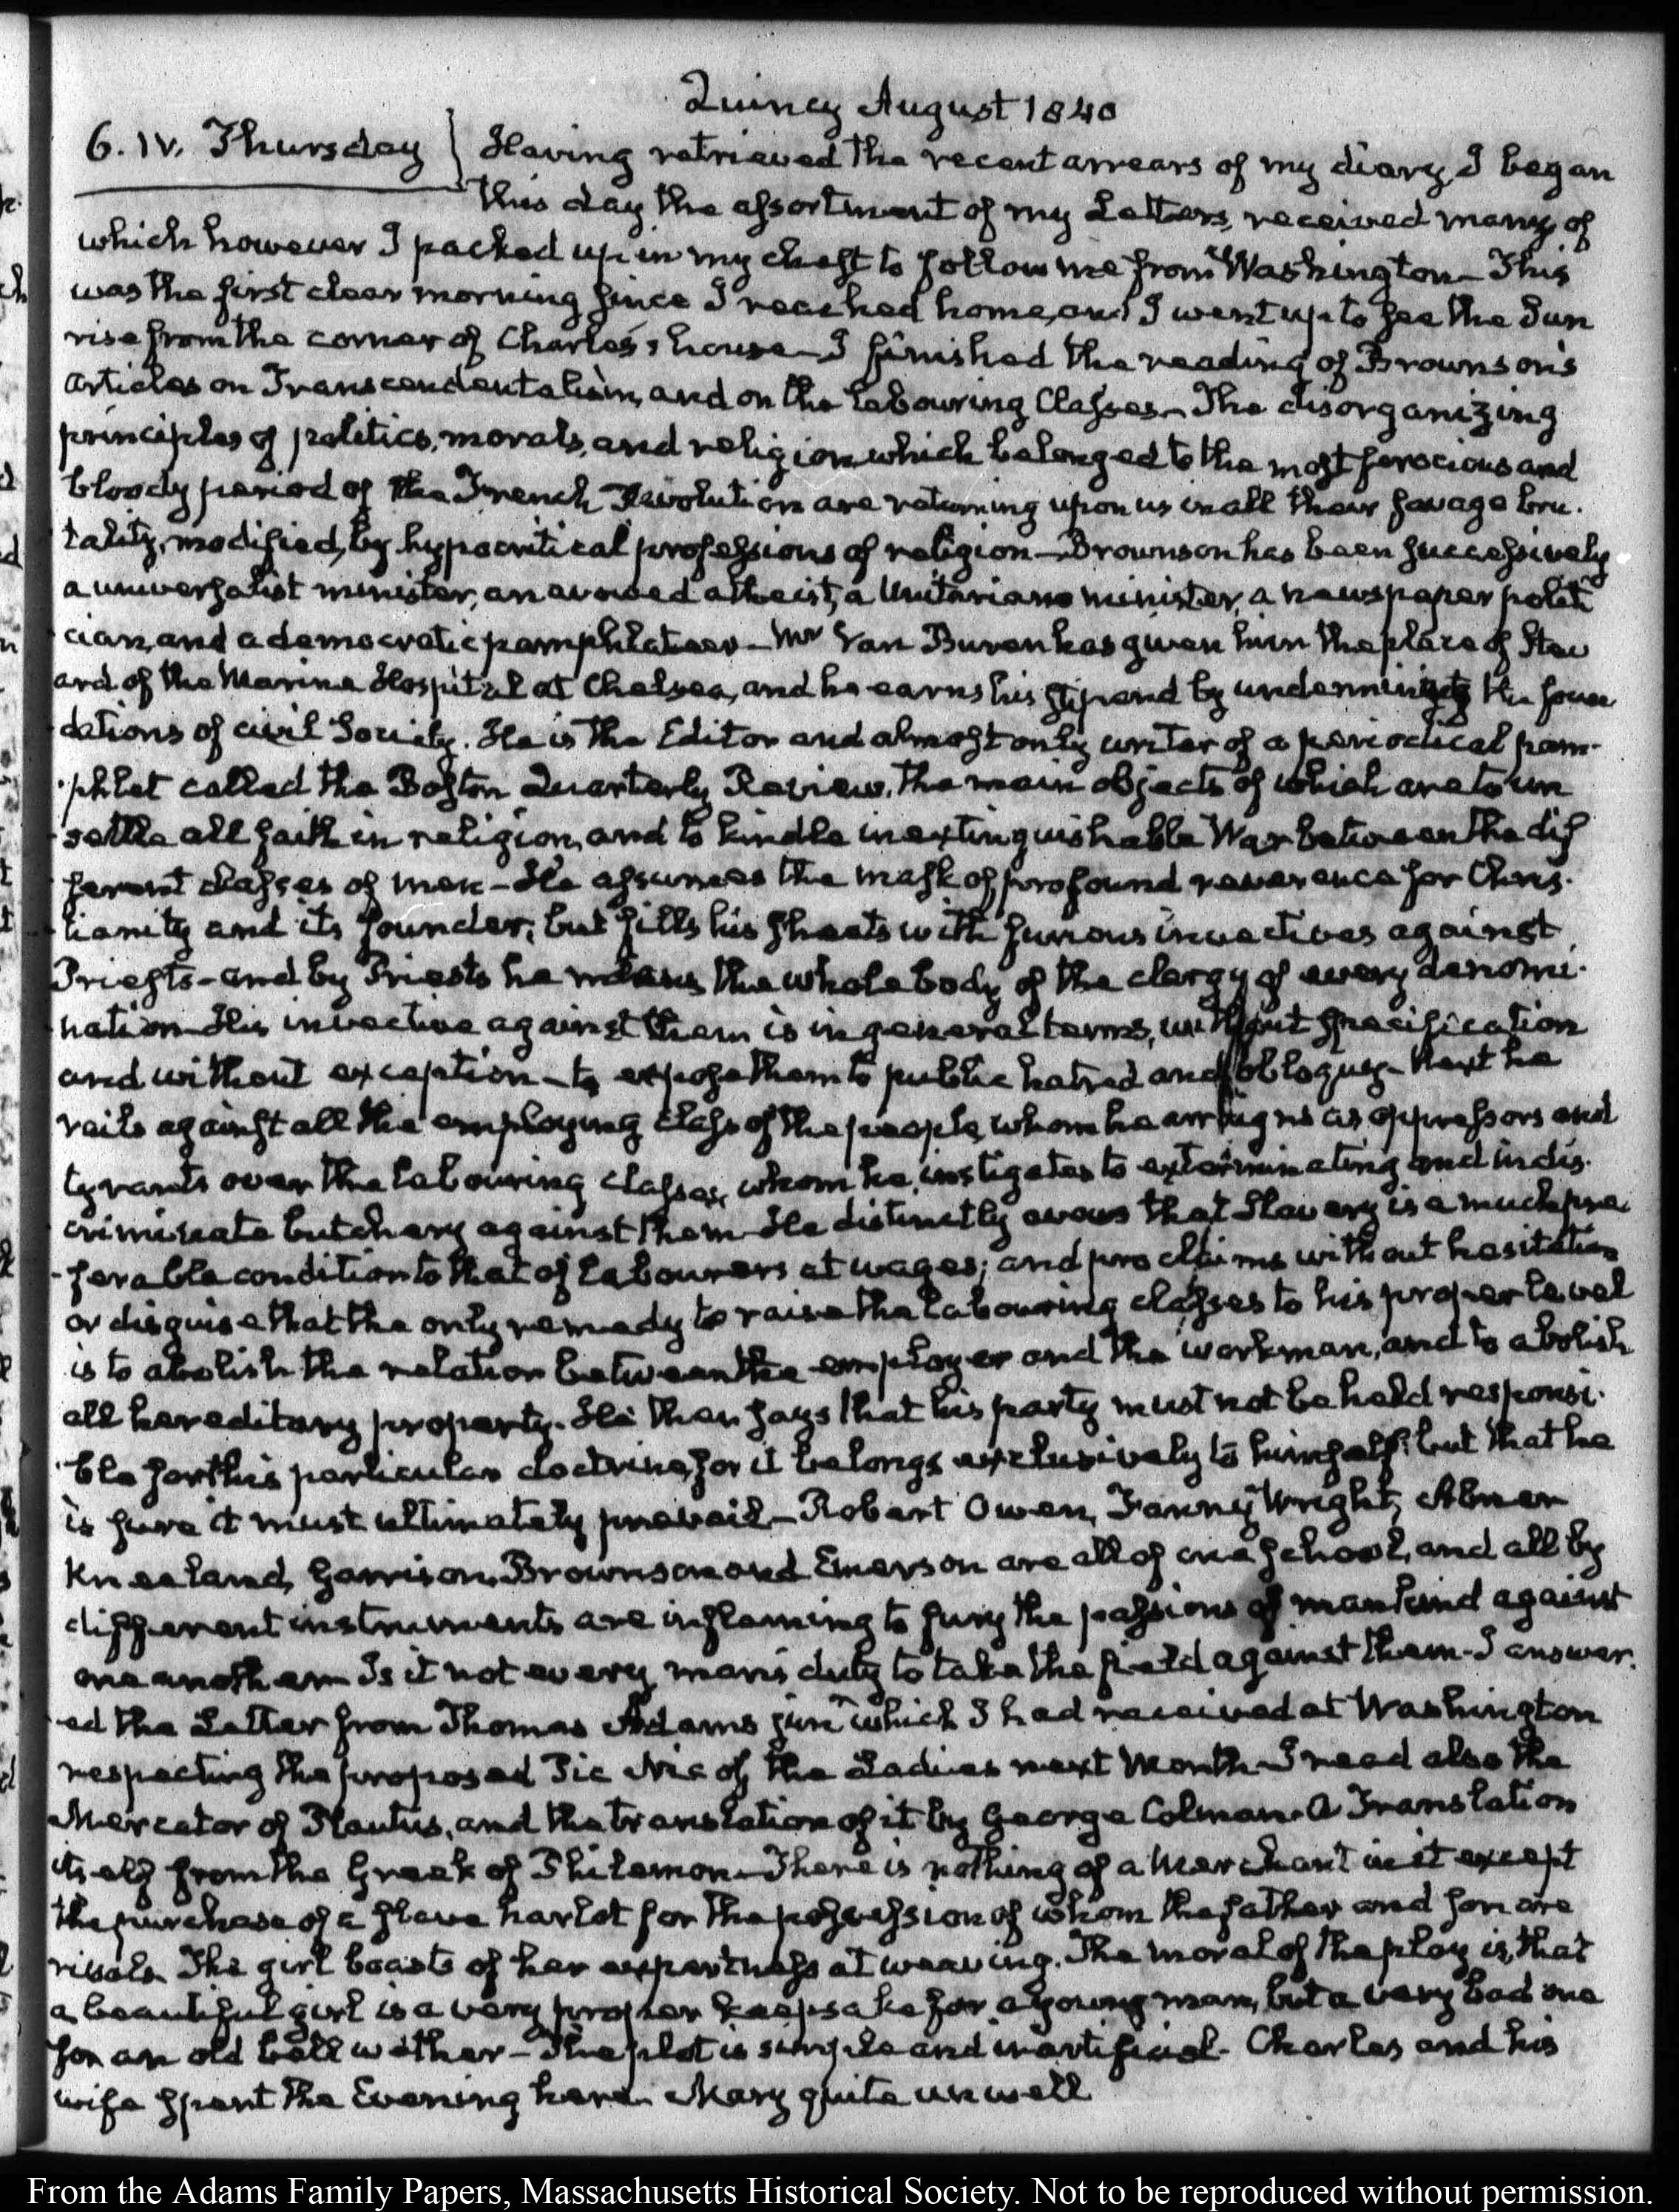 Quincy August 1840
6. IV. Thursday } Having retrieved the recent arrears of my diary, I began
this day the assortment of my Letters, received many of
which however I packed up in my chest to follow me from Washington – This
was the first clear morning since I reached home, and I went up to see the Sun
rise from the corner of Charles's house – I finished the reading of Brownson's
articles on Transcendentalism, and on the labouring Classes – The disorganizing
principles of politics, morals, and religion, which belonged to the most ferocious and
bloody period of the French Revolution are returning upon us in all their savage bru-
tality, modified, by hypocritical professions of religion – Brownson has been successively
a universalist minister, an avowed atheist, a Unitarian minister, a newspaper politi
cian, and a democratic pamphleteer – Mr Van Buren has given him the place of Stew
ard of the Marine Hospital at Chelsea, and he earns his stipend by undermining the foun
dations of civil Society. He is the Editor and almost only writer of a periodical pam-
phlet called the Boston Quarterly Review, the main objects of which are to un
settle all faith in religion, and to kindle inextinguishable War between the dif
ferent classes of men – He assumes the mask of profound reverence for Chris-
tianity and its founder; but fills his sheets with furious invectives against
Priests – and by Priests he means the whole body of the clergy of every denomi-
nation – His invective against them is in general terms, without specification
and without exception – to expose them to public hatred and obloquy – Next he
rails against all the employing class of the people, whom he arraigns as oppressors and
tyrants over the labouring classes, whom he instigates to exterminating and indis-
criminate butchery against them – He distinctly avows that Slavery is a much pre-
ferable condition to that of labourers at wages; and proclaims without hesitation
or disguise that the only remedy to raise the labouring classes to his proper level
is to abolish the relation between the employer and the workman, and to abolish
all hereditary property. He then says that his party must not be held responsi-
ble for this particular doctrine, for it belongs exclusively to himself; but that he
is sure it must ultimately prevail – Robert Owen, Fanny Wright, Abner
Kneeland, Garrison, Brownson and Emerson are all of one School, and all by
different instruments are inflaming to fury the passions of mankind against
one another – Is it not every man's duty to take the field against them – I answer-
ed the Letter from Thomas Adams junr which I had received at Washington
respecting the proposed Pic Nic of the Ladies next Month – I read also the
Mercator of Plautus, and the translation of it by George Colman. A Translation
itself from the Greek of Philemon – There is nothing of a Merchant in it except
the purchase of a slave harlot for the possession of whom the father and son are
rivals. The girl boasts of her expertness at weaving. The moral of the play is, that
a beautiful girl is a very proper keepsake for a young man, but a very bad one
for an old bell wether – The plot is simple and inartificial – Charles and his
wife spent the Evening here. Mary quite unwell
From the Adams Family Papers, Massachusetts Historical Society. Not to be reproduced without permission.